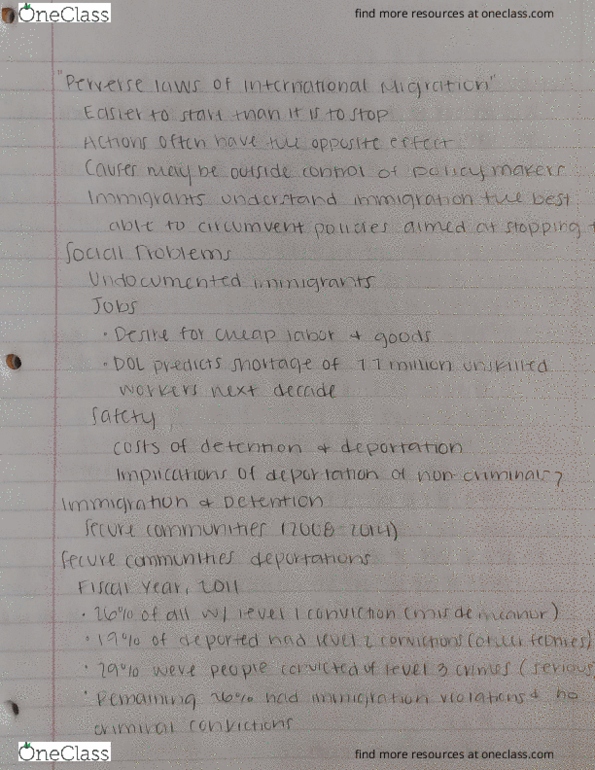 OneClass
find more resources at oneclass.com
"Perverse laws of International Migration"
Easier to start than it is to stop
Actions often have the opposite effect
Causes may be outside control of policymakers
Immigrants understand immigration the best
able to circumvent policies aimed at stopping
Social Problems
Undocumented immigrants
Jobs
· Desire for cheap labor + goods
· DOL predicts shortage of million unskilled
workers next decade
Safety
costs of detention + deportation
Implications of deportation of non-criminals?
Immigration + Detention
Secure communities (2008-2014)
Secure communities deportations
Fiscal Year, 2011
· 26% of all w/ level 1 conviction (misdemeanor)
· 19% of deported had level 2 convictions (other felonies)
· 29% were people convicted of level 3 crimes (serious
· Remaining 26% had immigration violations + no
criminal convictions
OneClass
find more resources at oneclass.com